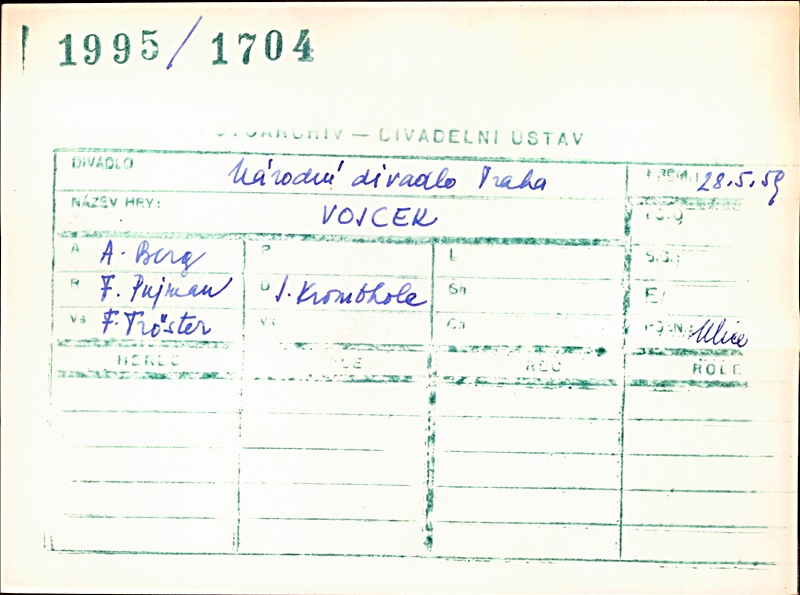 1995/1704
FOTOARCHIV — DIVADELNÍ ÚSTAV
DIVADLO Národní divadlo Praha PREM.: 28.5.59
NÁZEV HRY: VOJCEK
A A. Berg P L
R F. Pujman D J. Krombholc Sh E/
Vs F. Tröster Vk Ch POZN.: Ulice
HEREC ROLE ROLE